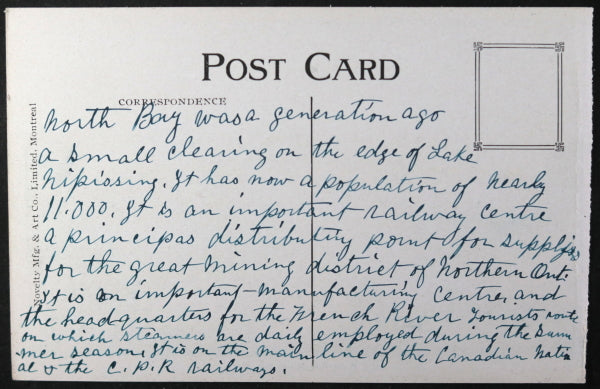 POST CARD
CORRESPONDENCE
Novelty Mfg. & Art Co., Limited, Montreal
North Bay was a generation ago
a small clearing on the edge of Lake
Nipissing. It has now a population of nearly
11.000. It is an important railway centre
a principas distributing point for supplies
for the great mining district of Northern Ont.
It is an important-manufacturing centre, and
the headquarters for the French River Tourists route
on which steamers are daily employed during the sum
mer season. It is on the main line of the Canadian Natio
al & the C.P.R railways.